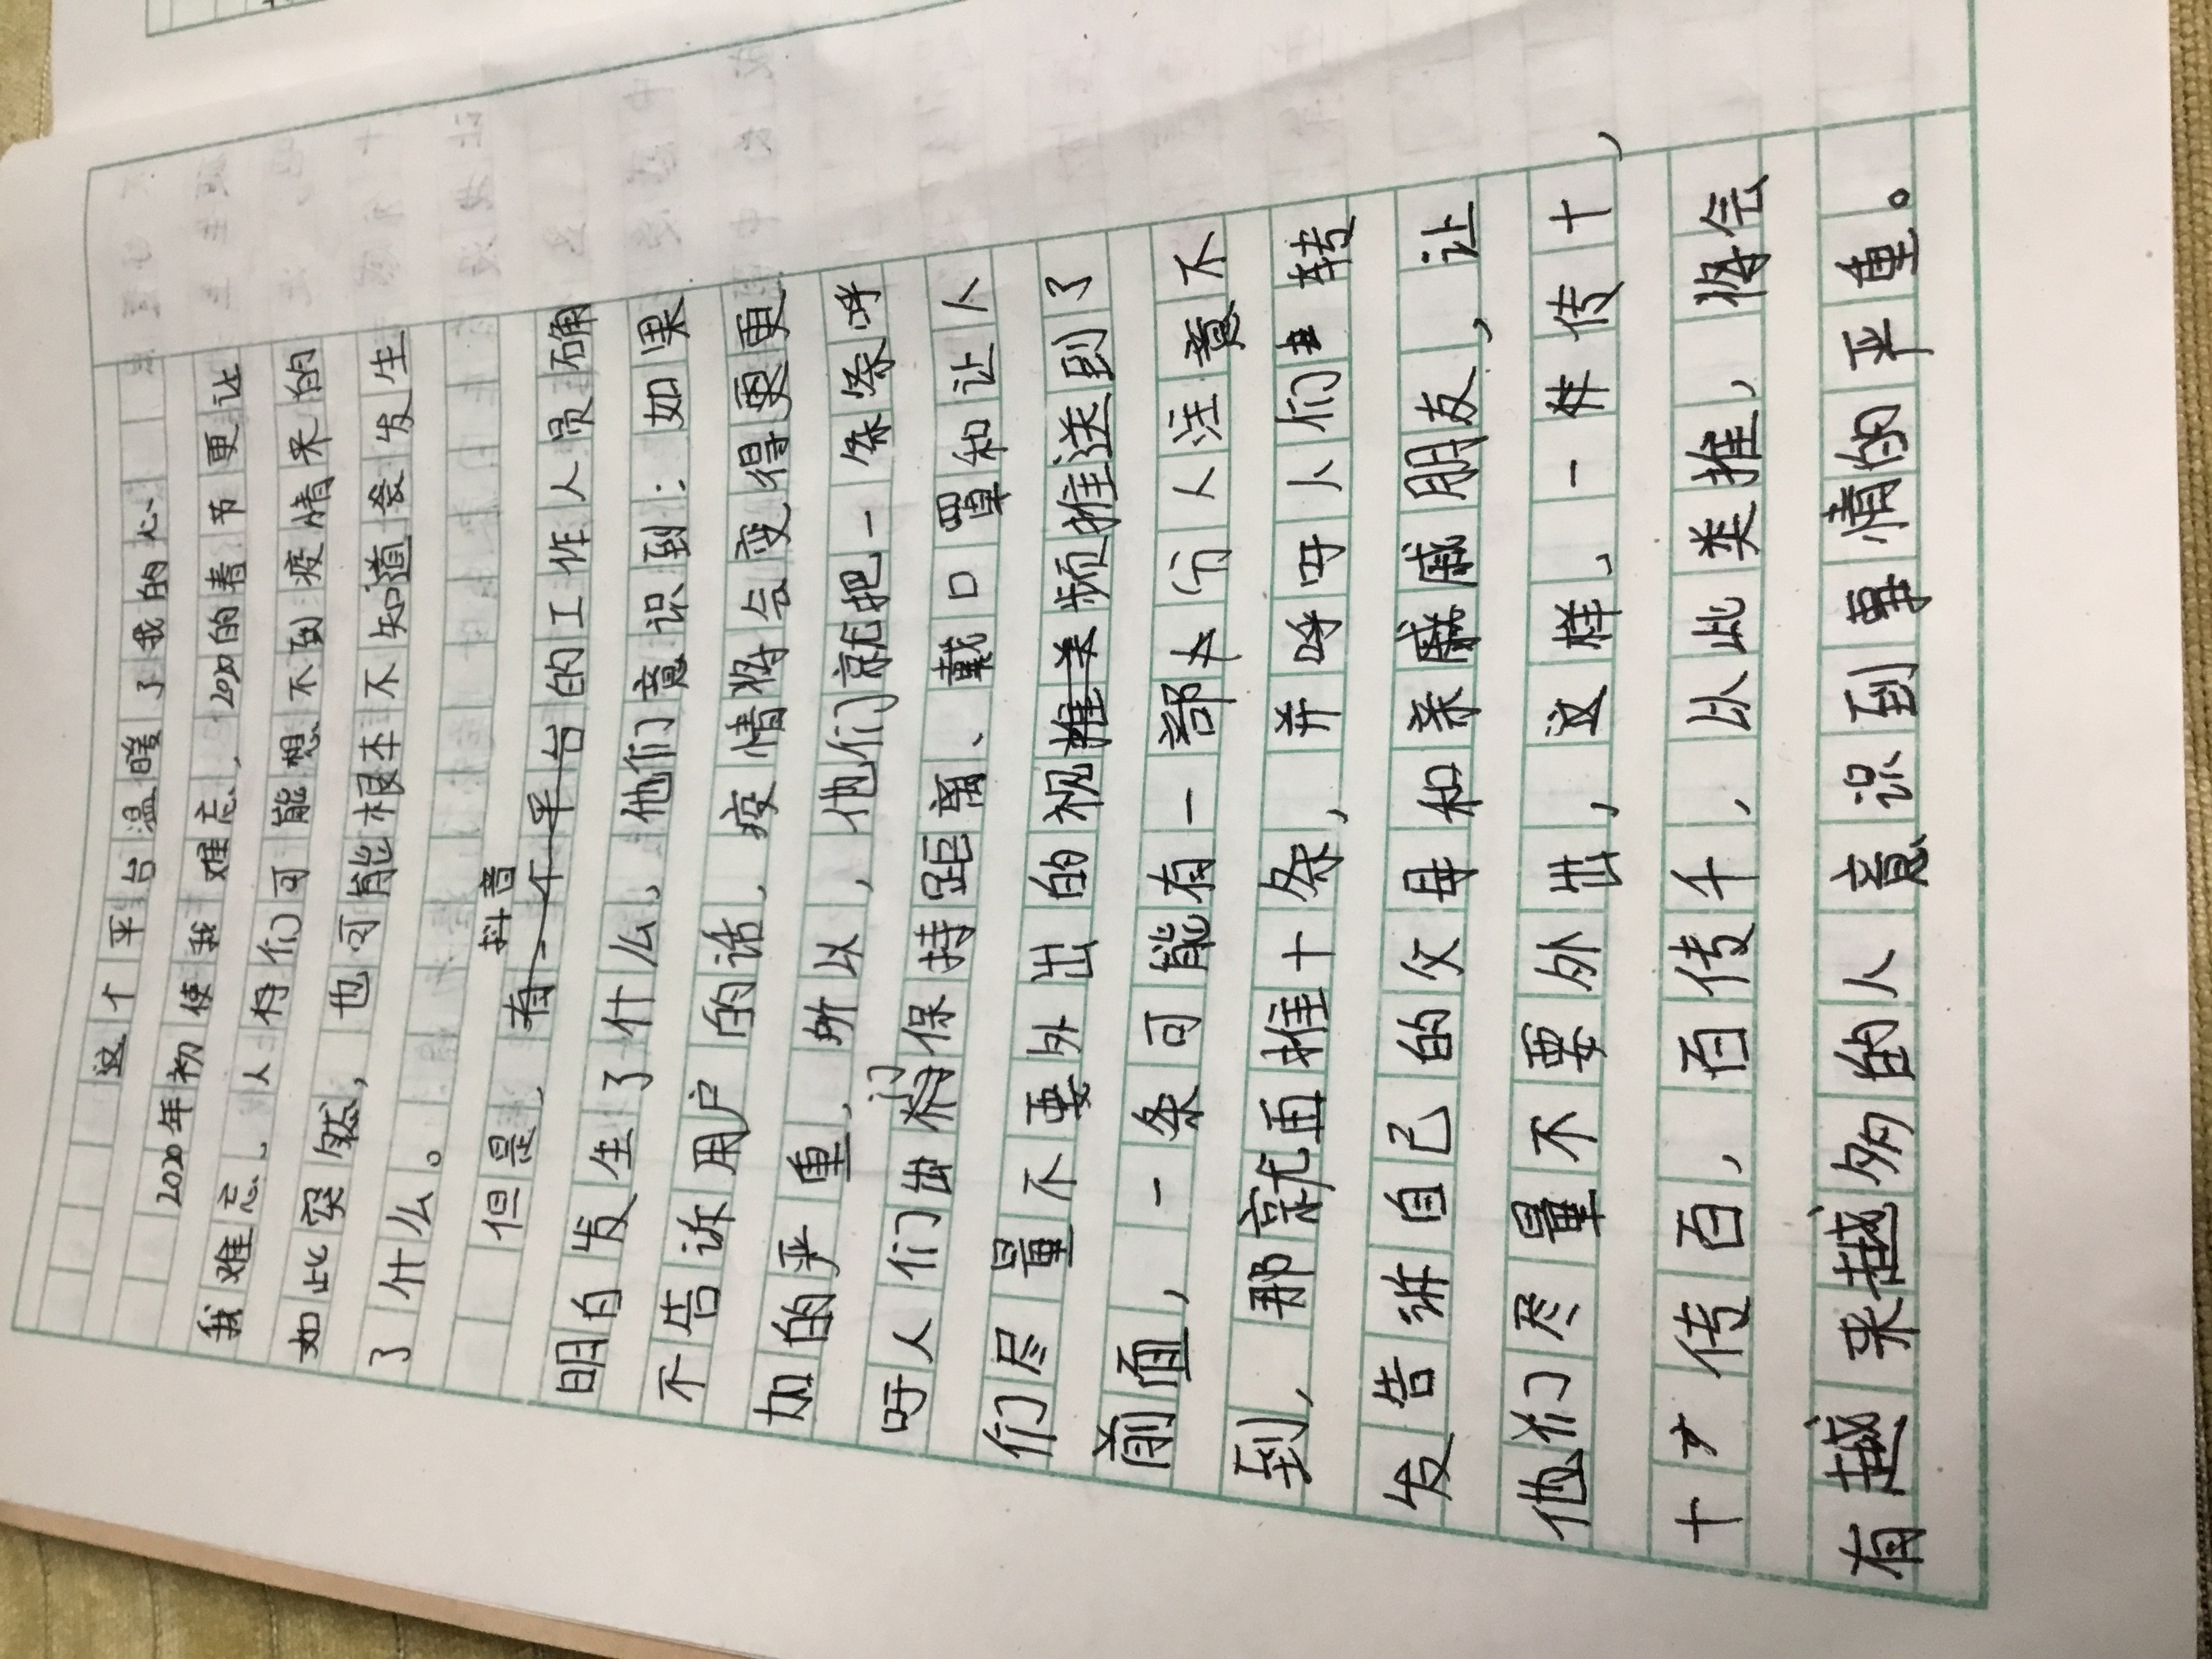 这个平台温暖了我的心
2020年初使我难忘，2020的春节更让
我难忘，人得们可能想不到疫情来的
如此突然，也可能根本不知道会发生
了什么。
抖音
但是，有一个平台的工作人员确
明白发生了什么，他们意识到：如果
不告诉用户的话，疫情将会变得更更
加的严重，所以，他们就把一条条呼
们
吁人们出门保持距离、戴口罩和让人
们尽量不要外出的视推关频推送到了
前面，一条可能有一部分人注意不
到，那就再推十条，并呼吁人们转
发告诉自己的父母和亲戚戚朋友，让
他们尽量不要外出，这样，一传十，
十传百，百传千，以此类推，将会
有越来越多的人意识到事情的严重。